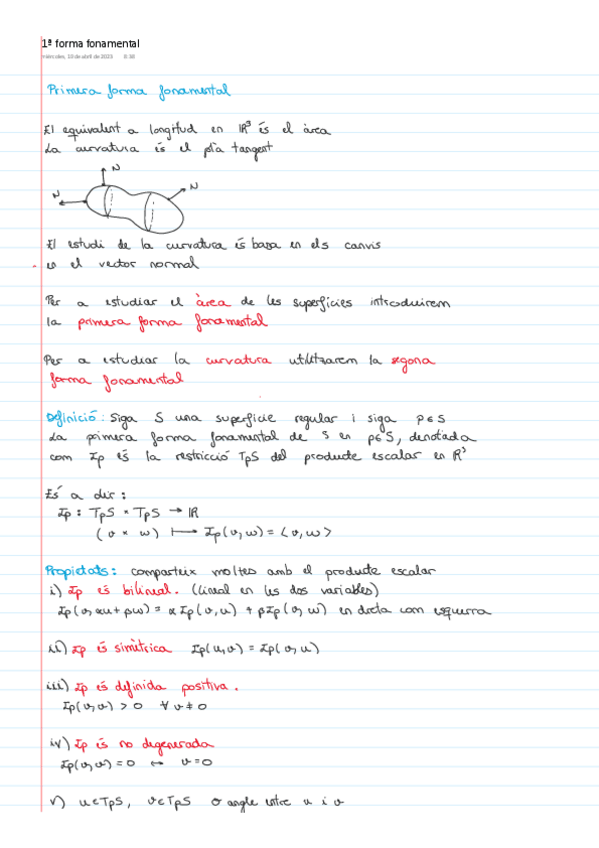 1ª forma fonamental
miércoles, 13 de abril de 2023 8:30
Primera forma fonamental
El equivalent a longitud en IR³ és el àrea
La curvatura és el pla tangent
N
N
N
El estudi de la curvatura és basa en els canvis
en el vector normal
Per a estudiar el àrea de les superfícies introduirem
la primera forma fonamental
Per a estudiar la curvatura utilitzarem la segona
forma fonamental
Definició: Siga S una superfície regular i siga p∈S
La primera forma fonamental de S en p∈S, denotada
com Ip és la restricció TpS del producte escalar en R³
És a dir:
Ip : TpS × TpS → IR
(v × w) ↦ Ip(v,w) = <v,w>
Propietats: comparteix moltes amb el producte escalar
i) Ip és bilineal. (Lineal en les dos variables)
Ip(v, αu+βw) = αIp(v,u) + βIp(v,w) en dreta com esquerra
ii) Ip és simètrica Ip(u,v) = Ip(v,u)
iii) Ip és definida positiva.
Ip(v,v) > 0 ∀ v≠0
iv) Ip és no degenerada
Ip(v,v) = 0 ↔ v=0
v) u∈TpS, v∈TpS σ angle entre u i v